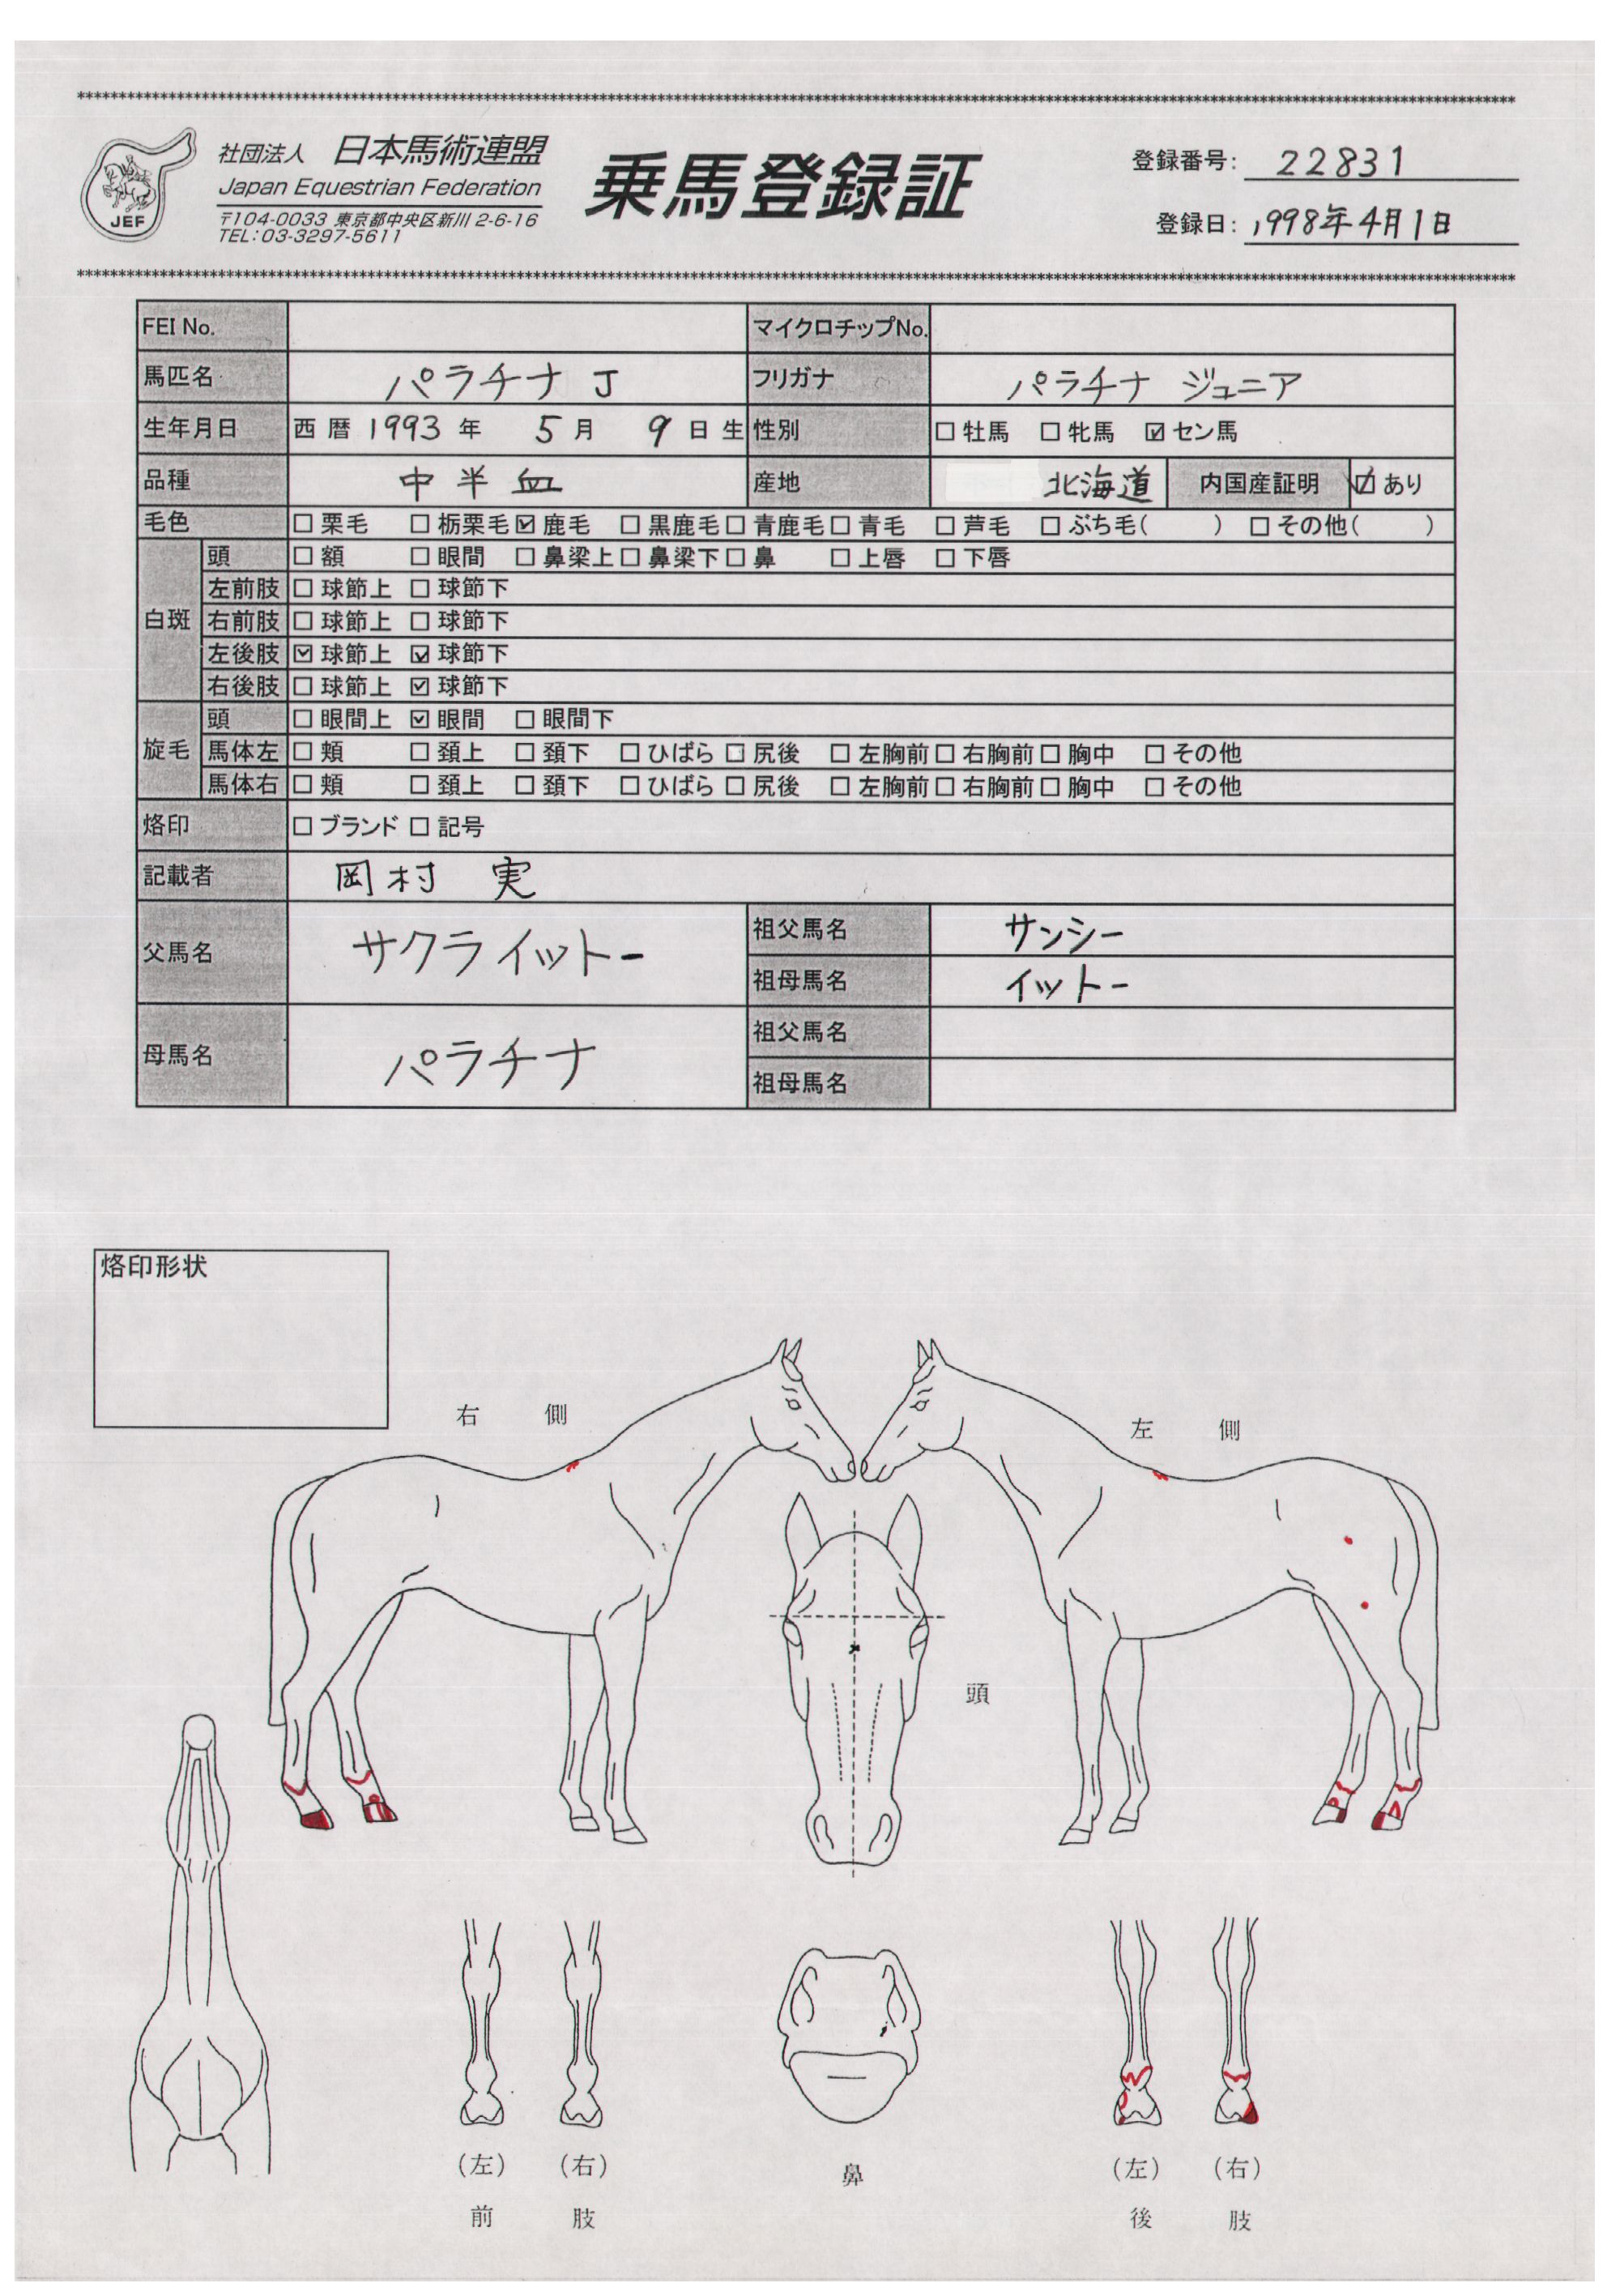 社団法人 日本馬術連盟
Japan Equestrian Federation
〒104-0033 東京都中央区新川 2-6-16
TEL:03-3297-5611
JEF
乗馬登録証
登録番号: 22831
登録日: 1998年4月1日
FEI No. マイクロチップNo.
馬匹名 パラチナ J フリガナ パラチナ ジュニア
生年月日 西暦 1993 年 5 月 9 日 生 性別 □ 牡馬 □ 牝馬 ☑ セン馬
品種 中半血 産地 北海道 内国産証明 ☑ あり
毛色 □ 栗毛 □ 栃栗毛 ☑ 鹿毛 □ 黒鹿毛 □ 青鹿毛 □ 青毛 □ 芦毛 □ ぶち毛( ) □ その他( )
白斑 頭 □ 額 □ 眼間 □ 鼻梁上 □ 鼻梁下 □ 鼻 □ 上唇 □ 下唇
左前肢 □ 球節上 □ 球節下
右前肢 □ 球節上 □ 球節下
左後肢 ☑ 球節上 ☑ 球節下
右後肢 □ 球節上 ☑ 球節下
旋毛 頭 □ 眼間上 ☑ 眼間 □ 眼間下
馬体左 □ 頬 □ 頚上 □ 頚下 □ ひばら □ 尻後 □ 左胸前 □ 右胸前 □ 胸中 □ その他
馬体右 □ 頬 □ 頚上 □ 頚下 □ ひばら □ 尻後 □ 左胸前 □ 右胸前 □ 胸中 □ その他
烙印 □ ブランド □ 記号
記載者 岡村 実
父馬名 サクライットー 祖父馬名 サンシー
祖母馬名 イットー
母馬名 パラチナ 祖父馬名
祖母馬名
烙印形状
右 側
左 側
頭
(左) (右)
前 肢
鼻
(左) (右)
後 肢